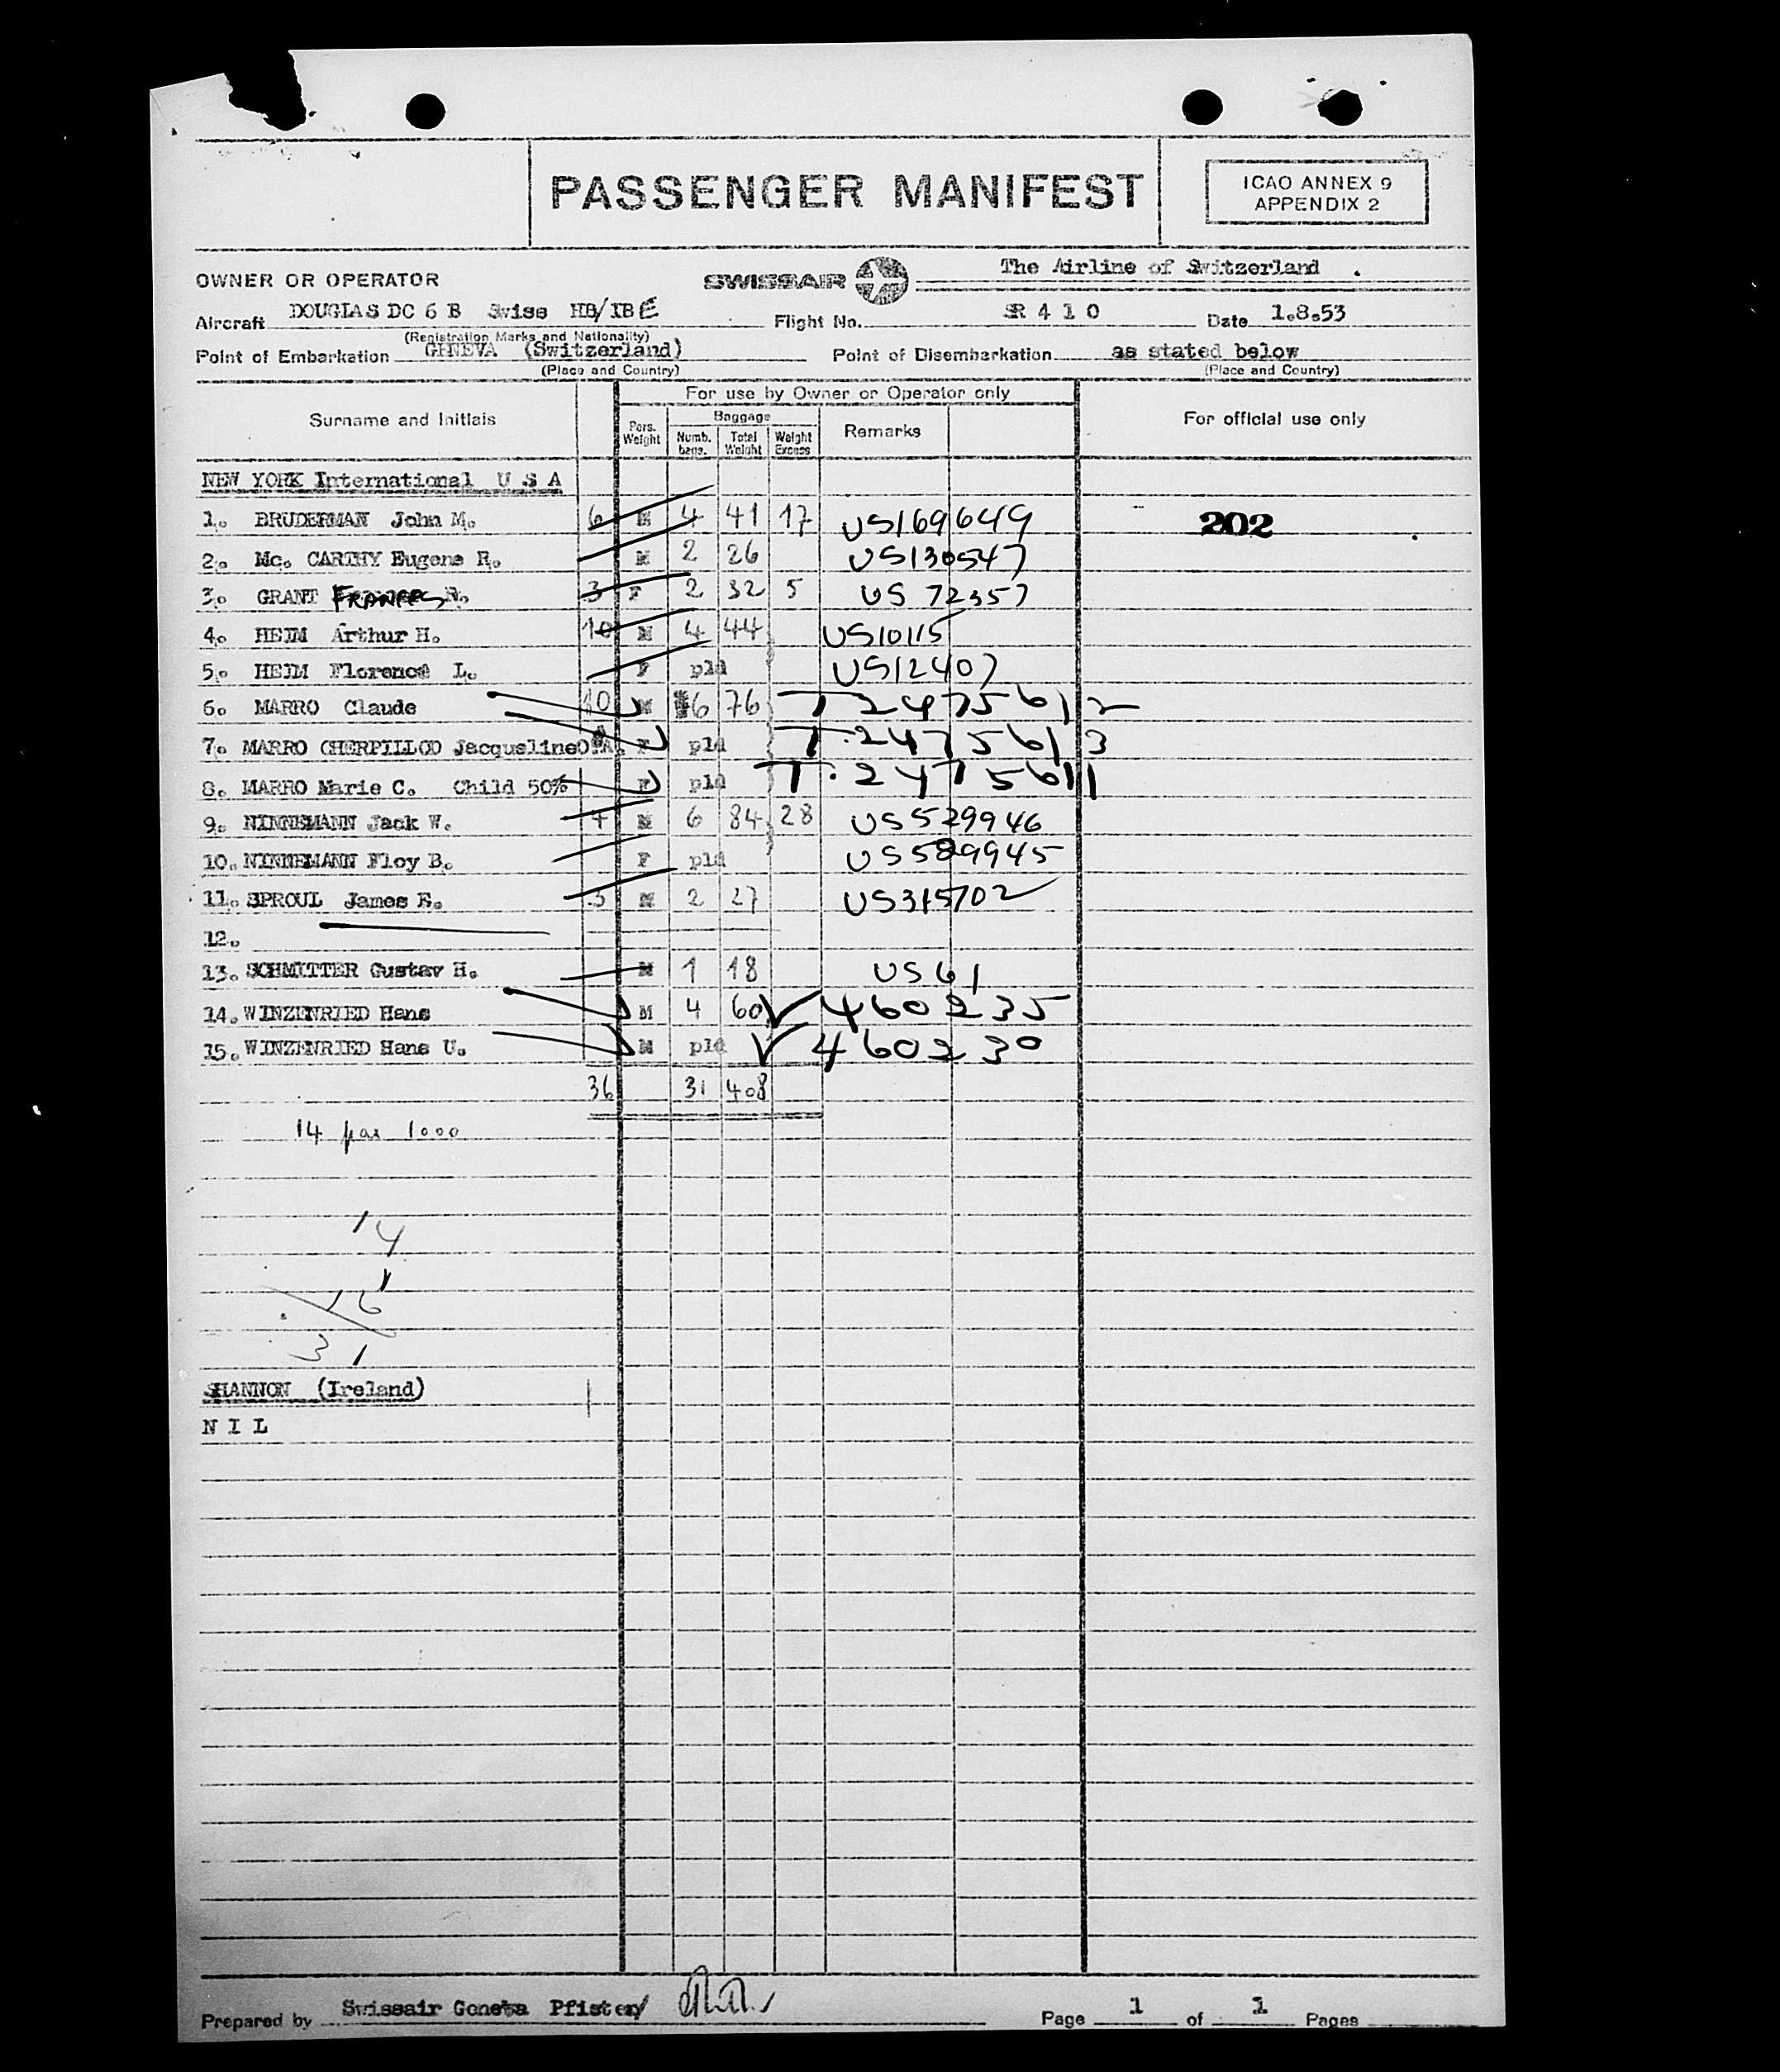 PASSENGER MANIFEST
ICAO ANNEX 9
APPENDIX 2
OWNER OR OPERATOR SWISSAIR The Airline of Switzerland .
Aircraft DOUGLAS DC 6 B Swiss HB/IBE Flight No. SR 4 1 0 Date 1.8.53
(Registration Marks and Nationality)
Point of Embarkation GENEVA (Switzerland) Point of Disembarkation as stated below
(Place and Country) (Place and Country)
For use by Owner or Operator only
Surname and Initials Pers. Weight Baggage Numb. bags. Total Weight Weight Excess Remarks For official use only
NEW YORK International U S A
1. BRUDERMAN John M. 6 M 4 41 17 US169649 202
2. Mc. CARTHY Eugene R. M 2 26 US130547
3. GRANT FRANCES R. 3 F 2 32 5 US 72357
4. HEIM Arthur H. 10 M 4 44 US10115
5. HEIM Florence L. F pld US12407
6. MARRO Claude 10 M 6 76 T 2475612
7. MARRO CHERPILLOD Jacqueline F pld T.2475613
8. MARRO Marie C. Child 50% F pld T.2475611
9. NINNEMANN Jack W. 4 M 6 84 28 US529946
10. NINNEMANN Floy B. F pld US529945
11. SPROUL James E. 3 M 2 27 US315702
12.
13. SCHMITTER Gustav H. M 1 18 US61
14. WINZENRIED Hans M 4 60 4602235
15. WINZENRIED Hans U. M pld 460230
36 31 408
14 pax 1000
14
16
31
SHANNON (Ireland)
N I L
Prepared by Swissair Geneva Pfister/ Page 1 of 1 Pages